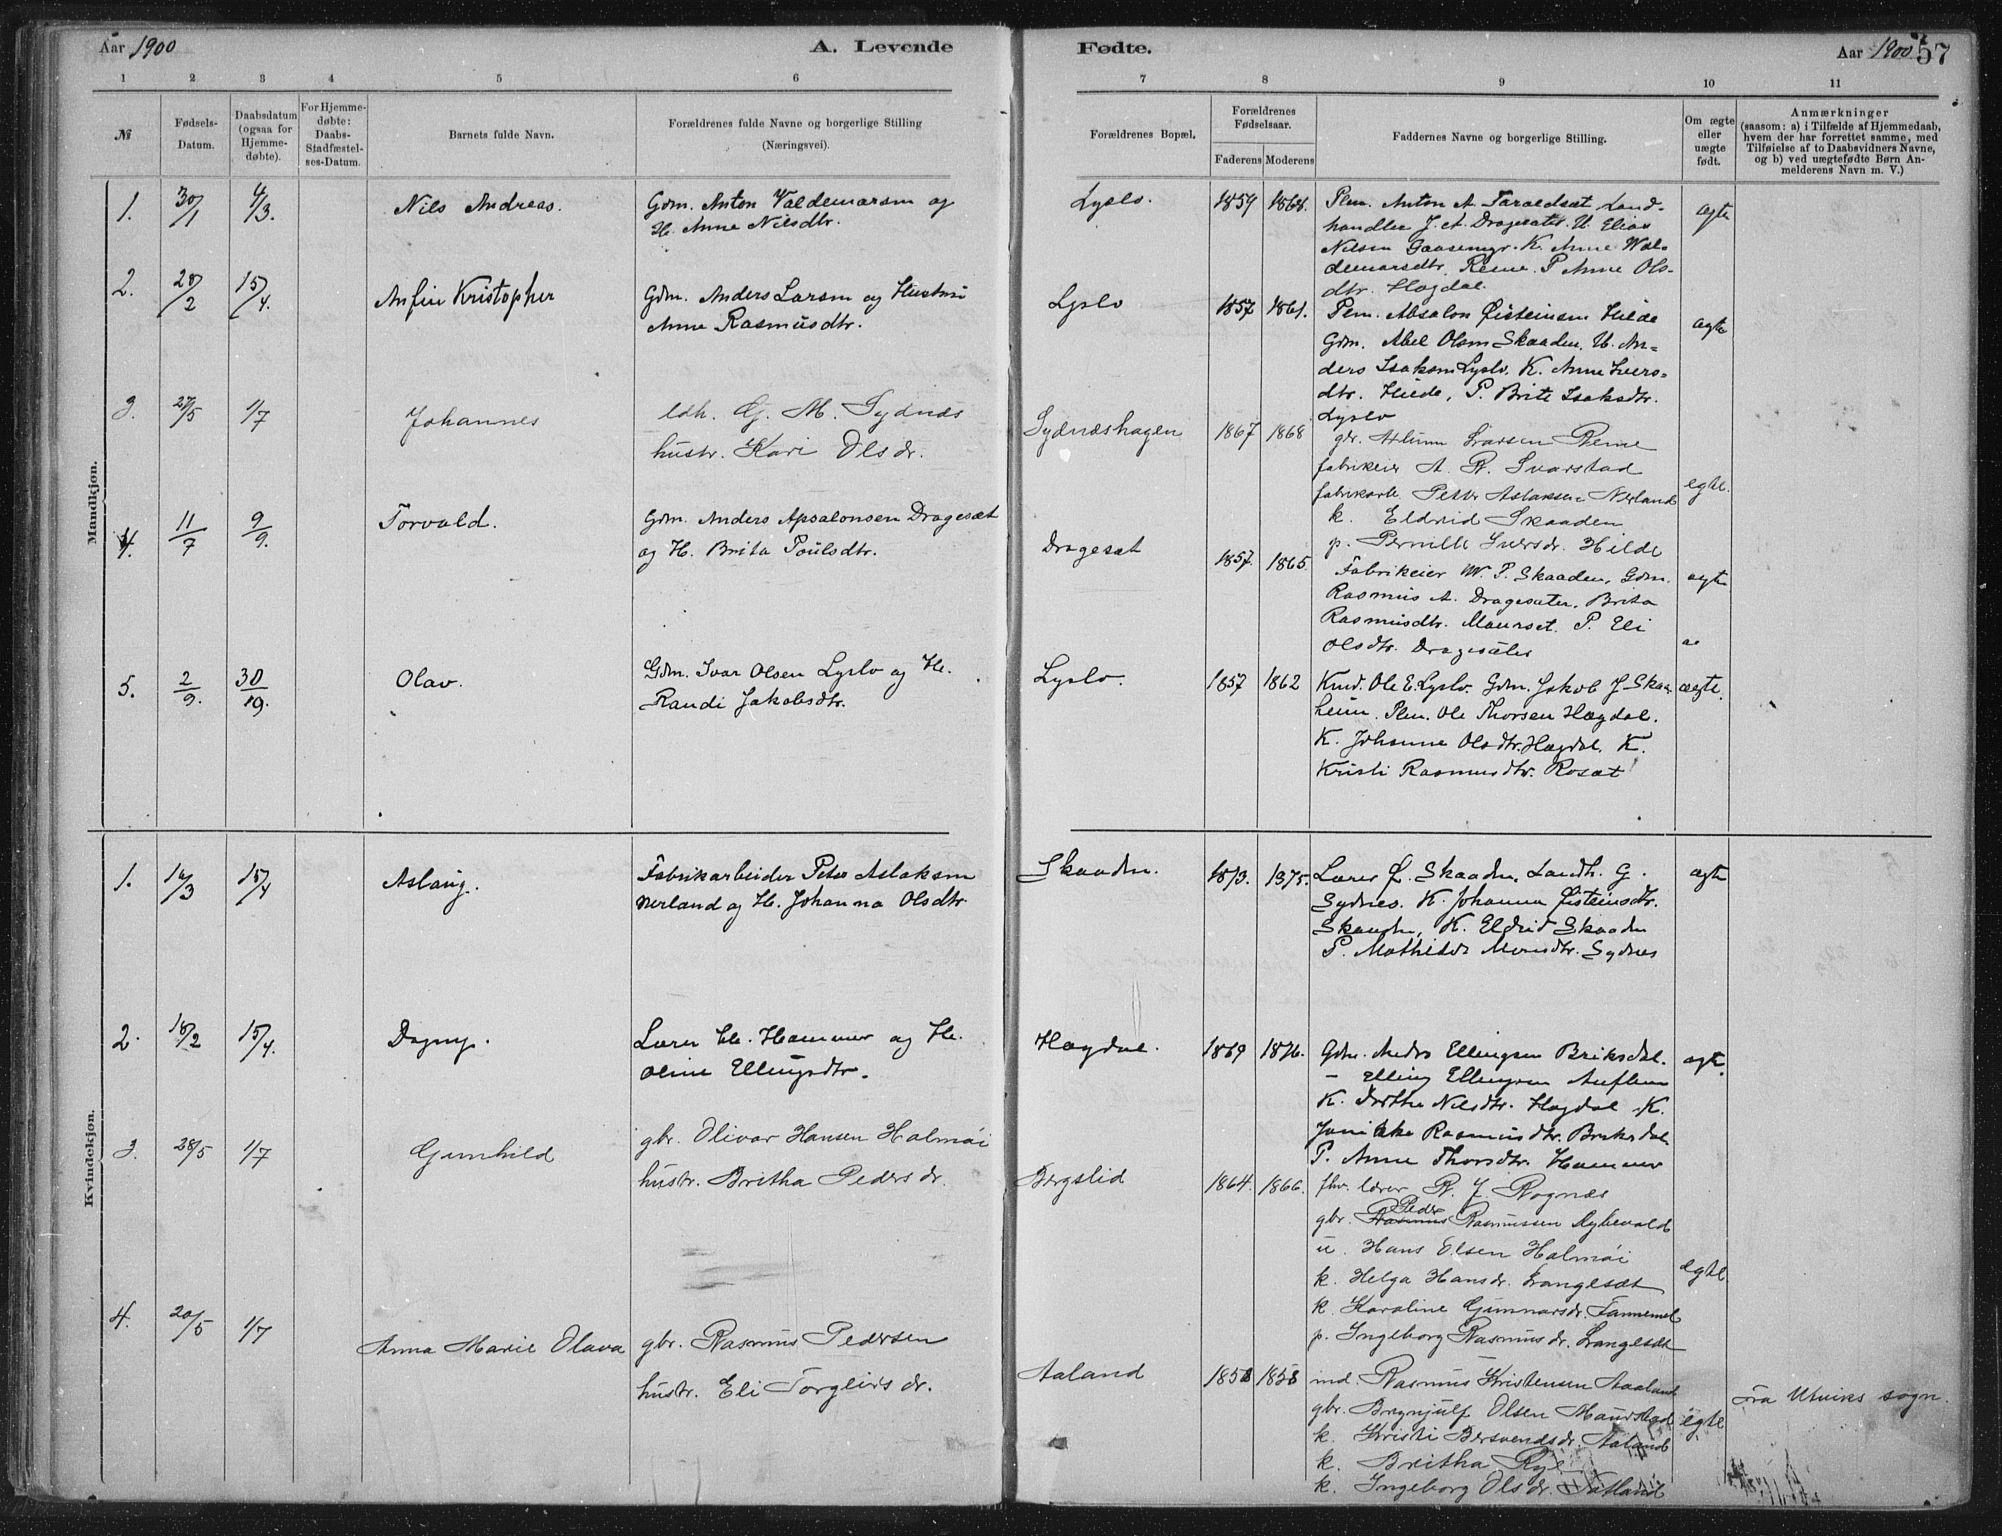 Aar 1900
A. Levende
Fødte.
Aar 1900
57
1 2 3 4 5 6 7 8 9 10 11
№
Fødsels-
Datum.
Daabsdatum
(ogsaa for
Hjemme-
døbte).
For Hjemme-
døbte:
Daabs-
Stadfæstel-
ses-Datum.
Barnets fulde Navn.
Forældrenes fulde Navne og borgerlige Stilling
(Næringsvei).
Forældrenes Bopæl.
Forældrenes
Fødselsaar.
Faderens Moderens
Faddernes Navne og borgerlige Stilling.
Om ægte
eller
uægte
født.
Anmærkninger
(saasom: a) i Tilfælde af Hjemmedaab,
hvem der har forrettet samme, med
Tilføielse af to Daabsvidners Navne,
og b) ved uægtefødte Børn An-
melderens Navn m. V.)
Mandkjøn.
1. 30/1 4/3. Nils Andreas.
Gdm. Anton Valdemarsen og
H. Anne Nilsdtr.
Lyslo. 1859 1868.
Plm. Anton A. Taraldsæt Land-
handler J. A. Dragesæter. U. Elias
Nilsen Gaasemyr. K. Anne Wal-
demarsdtr. Reme. P. Anne Ols-
dtr. Hogdal.
ægte
2. 28/2 15/4. Anfin Kristopher
Gdm. Anders Larsen og Hustru
Anne Rasmusdtr.
Lyslo 1857 1861.
Plm. Absalon Øisteinsen Hilde
Gdm. Abel Olsen Skaaden. U. An-
ders Isaksen Lyslo. K. Anne Ivers-
dtr. Hilde, P. Brite Isaksdtr.
Lyslo
ægte
3. 27/5 1/7 Johannes
ldh. G. M. Sydnæs
hustr. Kari Olsdr.
Sydnæshagen 1867 1868
gbr. Larsen Reme
fabrikeier A. R. Svarstad
fabrikarb. Petter Aslaksen Nerland
k. Eldrid Skaaden
p. Pernille Iversdr. Hilde
egte.
4. 11/7 9/9. Torvald.
Gdm. Anders Apsalonsen Dragesæt
og H. Brita Poulsdtr.
Dragesæt 1857. 1865.
Fabrikeier M. P. Skaaden, Gdm.
Rasmus A. Dragesæter, Brita
Rasmusdtr. Maurset. P. Eli
Olsdtr. Dragesæter
ægte
5. 2/9. 30/9. Olav.
Gdm. Ivar Olsen Lyslo og H.
Randi Jakobsdtr.
Lyslo. 1857 1862
Ole E. Lyslo. Gdm. Jakob J. Skaar-
heim. Plm. Ole Thorsen Hogdal.
K. Johanne Olsdtr. Hogdal. K.
Kristi Rasmusdtr. Rosæt
ægte.
Kvindekjøn.
1. 16/3 15/4 Aslaug.
Fabrikarbeider Peter Aslaksen
Nerland og H. Johanna Olsdtr.
Skaaden. 1873. 1875.
Lærer Ø. Skaaden. Landh. G.
Sydnes. K. Johanna Øisteinsdtr.
Skaaden, K. Eldrid Skaaden
P. Mathilde Monsdtr. Sydnes
ægte
2. 18/2 15/4. Dagny.
Lærer H. Hammer og H.
Oline Ellingsdtr.
Hogdal. 1869 1876.
Gdm. Anders Ellingsen Briksdal.
– Elling Ellingsen Aaflem
K. Dorthe Nilsdtr. Hogdal. K.
Janikke Rasmusdtr. Briksdal
P. Anne Thorsdtr. Hammer
ægte.
3. 28/5 1/7 Gunhild
gbr. Olivar Hansen Halmøi
hustr. Britha Pedersdr.
Bergslid 1864. 1866.
fhv. lærer R. J. Rognæs
gbr. Peder Rasmussen Myklevold
u. Hans Olsen Halmøi
k. Helga Hansdr. Langesæt
k. Karoline Gunnarsdr. Tannemel
p. Ingeborg Rasmusdr. Langesæt
egte.
4. 20/5 1/7 Anna Marie Olava
gbr. Rasmus Pedersen
hustr. Eli Torgleivsdr.
Aaland 1858 1858
ind. Rasmus Kristensen Aaland
gbr. Brynjulf Olsen Maurstad
k. Kristi Bersvendsdr. Aaland
k. Britha Rye
k. Ingeborg Olsdr. Tatland
egte
Fra Utviks sogn.